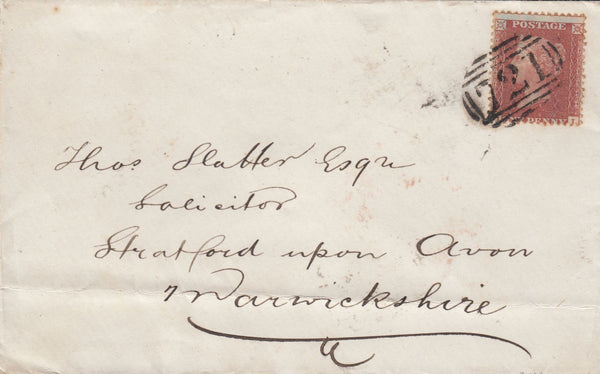 POSTAGE
721
PENNY
Thos Slatter Esqr
Solicitor
Stratford upon Avon
Warwickshire